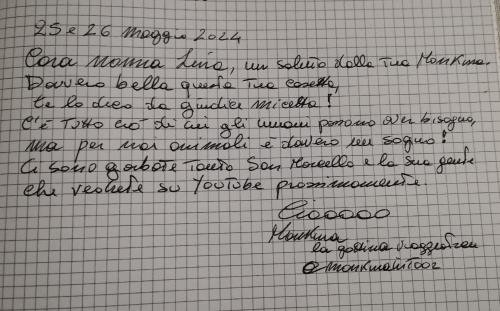 25 e 26 Maggio 2024
Cara nonna Lina, un saluto dalla tua MonKma.
Davvero bella questa tua casetta,
te lo dico da giudice micetta!
C'è tutto ciò di cui gli umani possano aver bisogno,
ma per noi animali è davvero un sogno!
Ci sono garbate tanto San Marcello e la sua gente
che vedrete su YouTube prossimamente.
Ciaoooo
MonKma
la gattina viaggiatrice
@monkmaintour